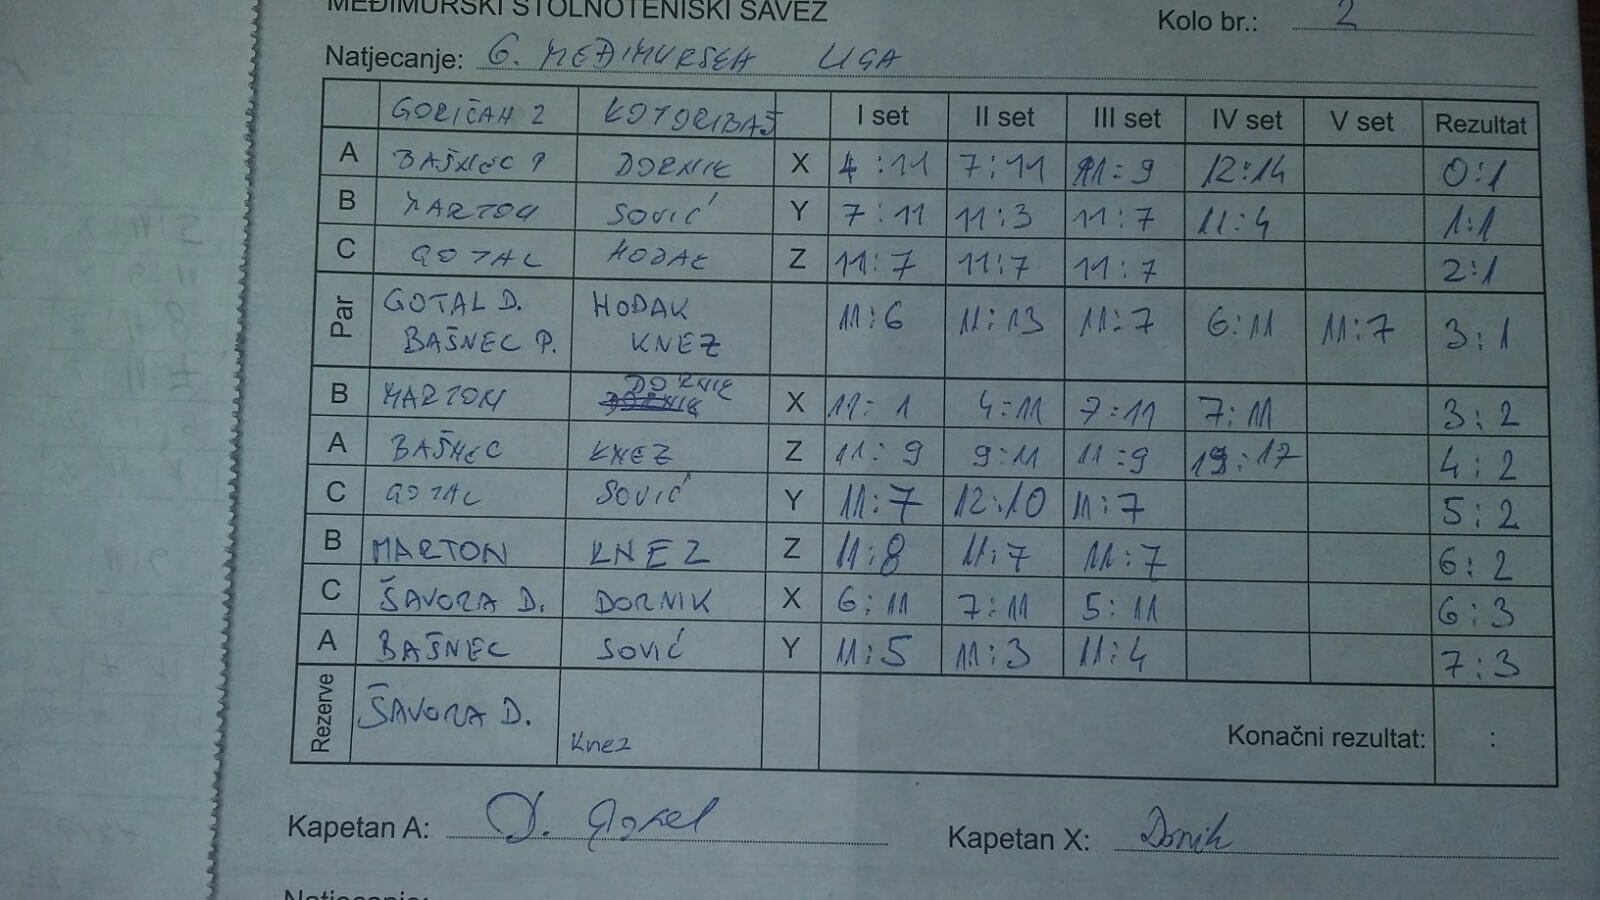 MEĐIMURSKI STOLNOTENISKI SAVEZ
Kolo br.: 2
Natjecanje: 6. MEĐIMURSKA LIGA
GORIČAN 2 KOTORIBA I set II set III set IV set V set Rezultat
A BAŠNEC P DORNIK X 4:11 7:11 11:9 12:14 0:1
B MARTON SOVIĆ Y 7:11 11:3 11:7 11:4 1:1
C GOTAL HODAK Z 11:7 11:7 11:7 2:1
Par GOTAL D. HODAK 11:6 11:13 11:7 6:11 11:7 3:1
BAŠNEC P. KNEZ
B MARTON DORNIK X 11:1 4:11 7:11 7:11 3:2
A BAŠNEC KNEZ Z 11:9 9:11 11:9 19:17 4:2
C GOTAL SOVIĆ Y 11:7 12:10 11:7 5:2
B MARTON KNEZ Z 11:8 11:7 11:7 6:2
C ŠAVORA D. DORNIK X 6:11 7:11 5:11 6:3
A BAŠNEC SOVIĆ Y 11:5 11:3 11:4 7:3
Rezerve ŠAVORA D. Knez Konačni rezultat: :
Kapetan A: D. Kapetan X: Dornik
Natjecanje: